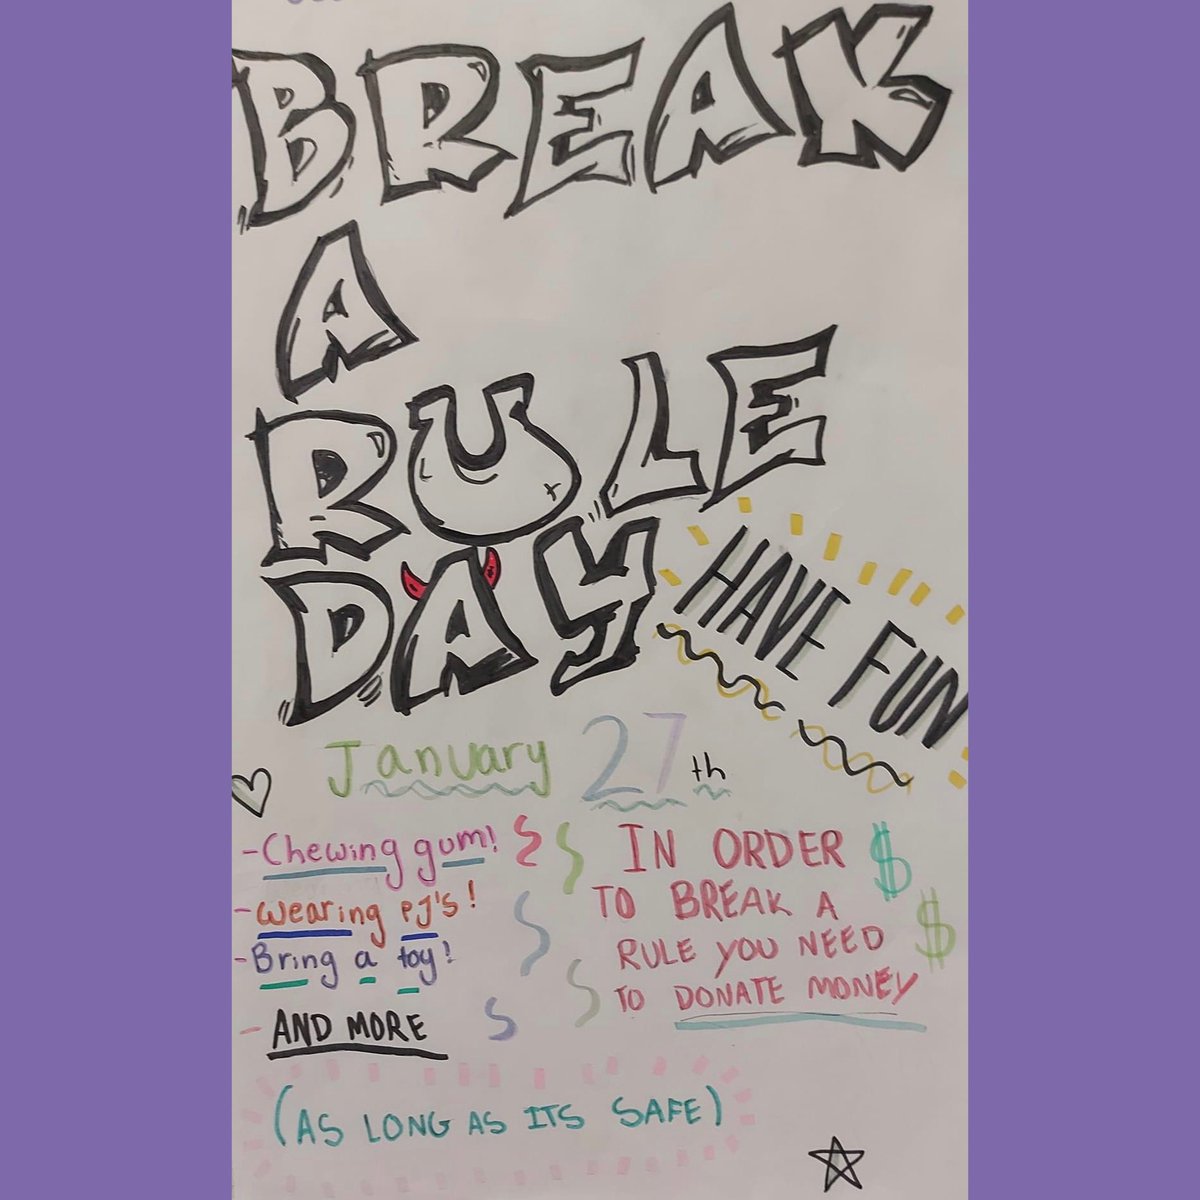 BREAK
A
RULE
DAY
HAVE FUN
January 27th
-Chewing gum!
-Wearing PJ's!
-Bring a toy!
- AND MORE
IN ORDER $
TO BREAK A
RULE YOU NEED $
TO DONATE MONEY
(AS LONG AS ITS SAFE)